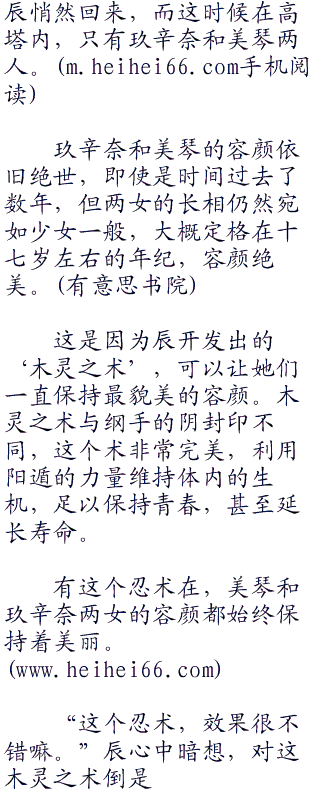 辰悄然回来，而这时候在高
塔内，只有玖辛奈和美琴两
人。(m.heihei66.com手机阅
读)
玖辛奈和美琴的容颜依
旧绝世，即使是时间过去了
数年，但两女的长相仍然宛
如少女一般，大概定格在十
七岁左右的年纪，容颜绝
美。(有意思书院)
这是因为辰开发出的
‘木灵之术’，可以让她们
一直保持最貌美的容颜。木
灵之术与纲手的阴封印不
同，这个术非常完美，利用
阳遁的力量维持体内的生
机，足以保持青春，甚至延
长寿命。
有这个忍术在，美琴和
玖辛奈两女的容颜都始终保
持着美丽。
(www.heihei66.com)
“这个忍术，效果很不
错嘛。”辰心中暗想，对这
木灵之术倒是